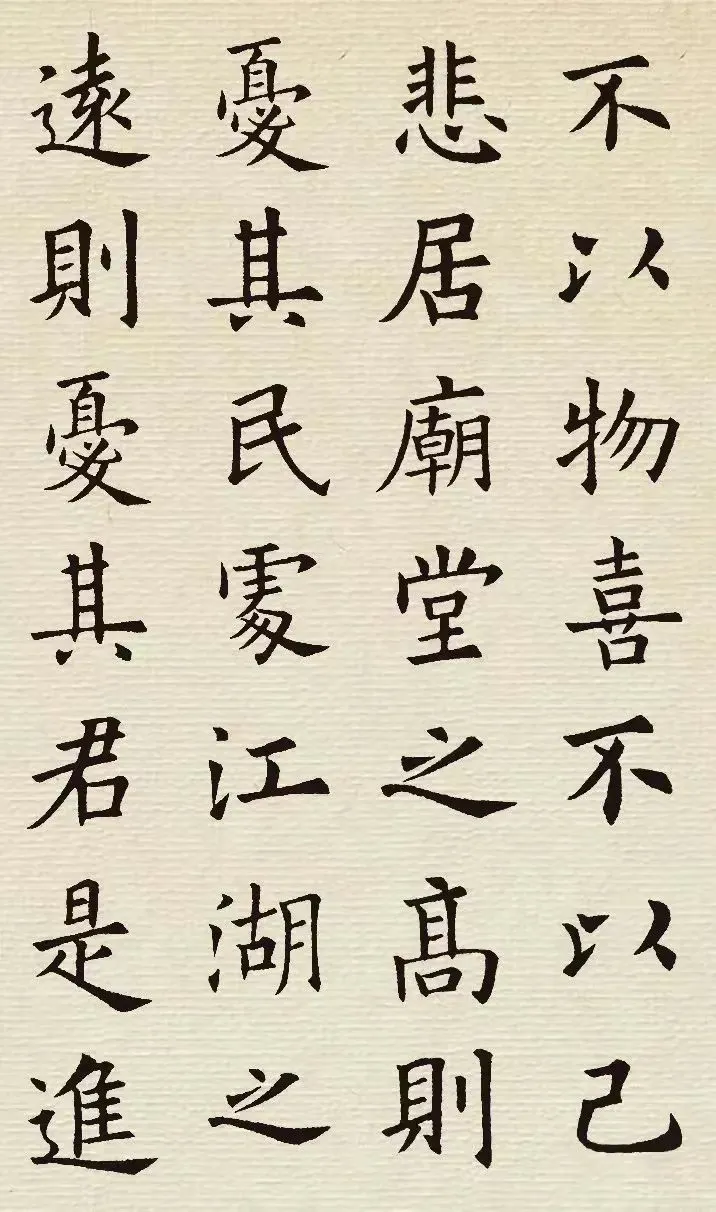 不以物喜不以己
悲居廟堂之髙則
憂其民處江湖之
遠則憂其君是進